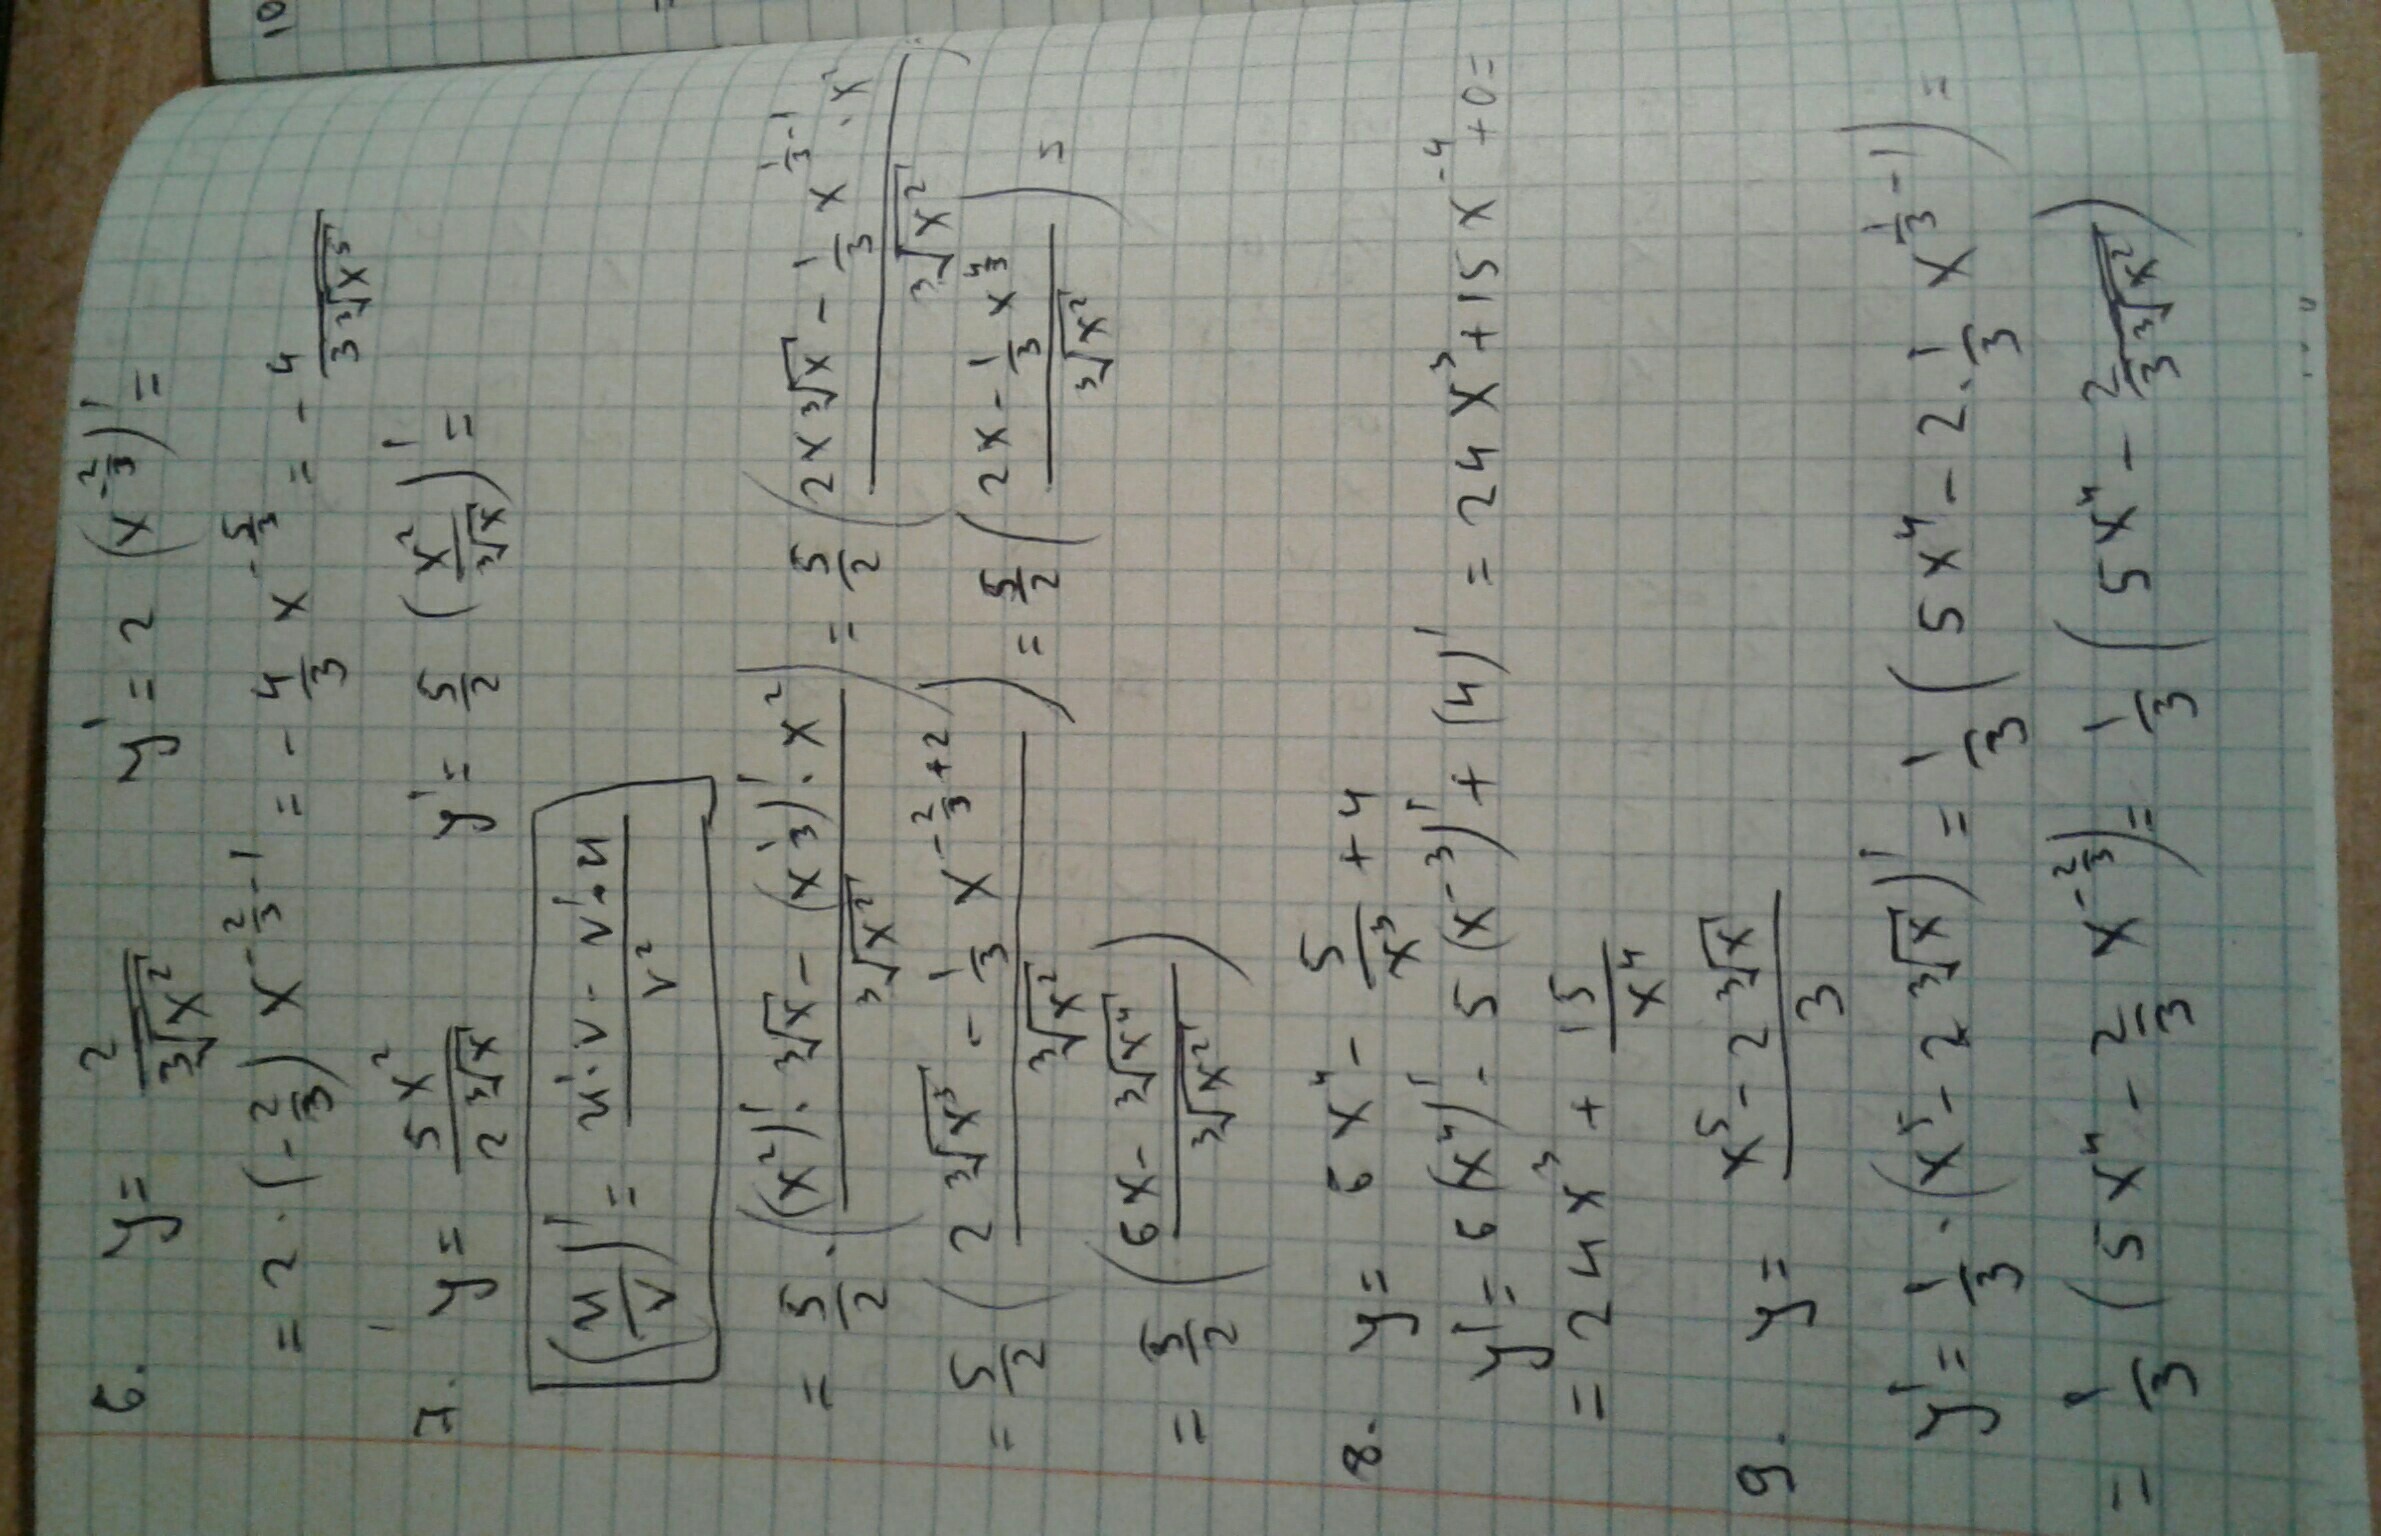 10
6. y = 2/∛x² y' = 2 (x^(-2/3))' =
= 2 · (-2/3) x^(-2/3-1) = -4/3 x^(-5/3) = -4/(3∛x⁵)
7. y = 5x²/(2∛x) y' = 5/2 (x²/∛x)' =
(u/v)' = (u'·v - v'·u)/v²
= 5/2 · (((x²)'·∛x - (x^(1/3))'·x²)/∛x²) = 5/2 ((2x∛x - 1/3 x^(1/3-1)·x²)/∛x²)
= 5/2 ((2∛x³ - 1/3 x^(-2/3+2))/∛x²) = 5/2 ((2x - 1/3 x^(4/3))/∛x²) =
= 5/2 ((6x - ∛x⁴)/∛x²)
8. y = 6x⁴ - 5/x³ + 4
y' = 6(x⁴)' - 5(x⁻³)' + (4)' = 24x³ + 15x⁻⁴ + 0 =
= 24x³ + 15/x⁴
9. y = (x⁵ - 2∛x)/3
y' = 1/3 · (x⁵ - 2∛x)' = 1/3 (5x⁴ - 2·1/3 x^(1/3-1)) =
= 1/3 (5x⁴ - 2/3 x^(-2/3)) = 1/3 (5x⁴ - 2/(3∛x²))